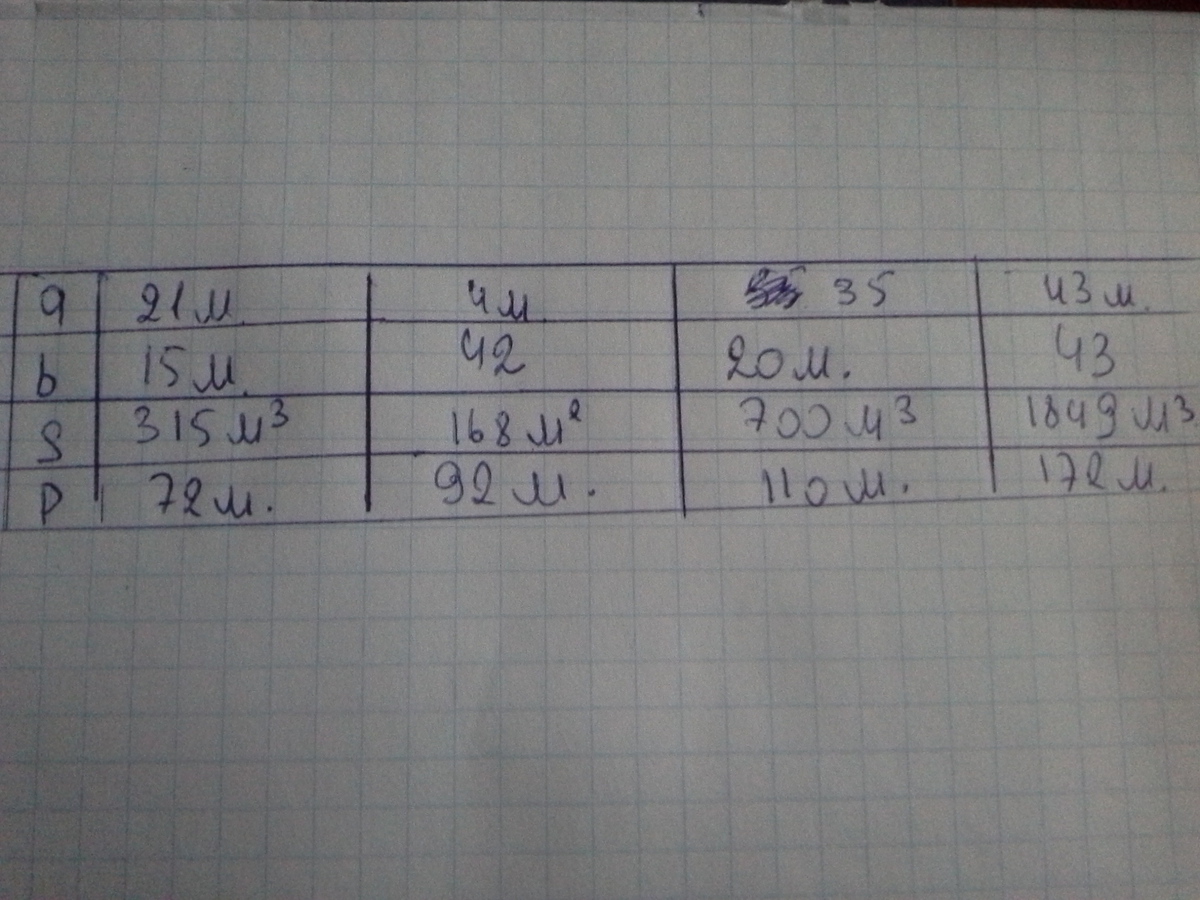 a 21м 4м 35 43м.
b 15м. 42 20м. 43
S 315м³ 168м² 700м³ 1849м³
P 72м. 92м. 110м. 172м.